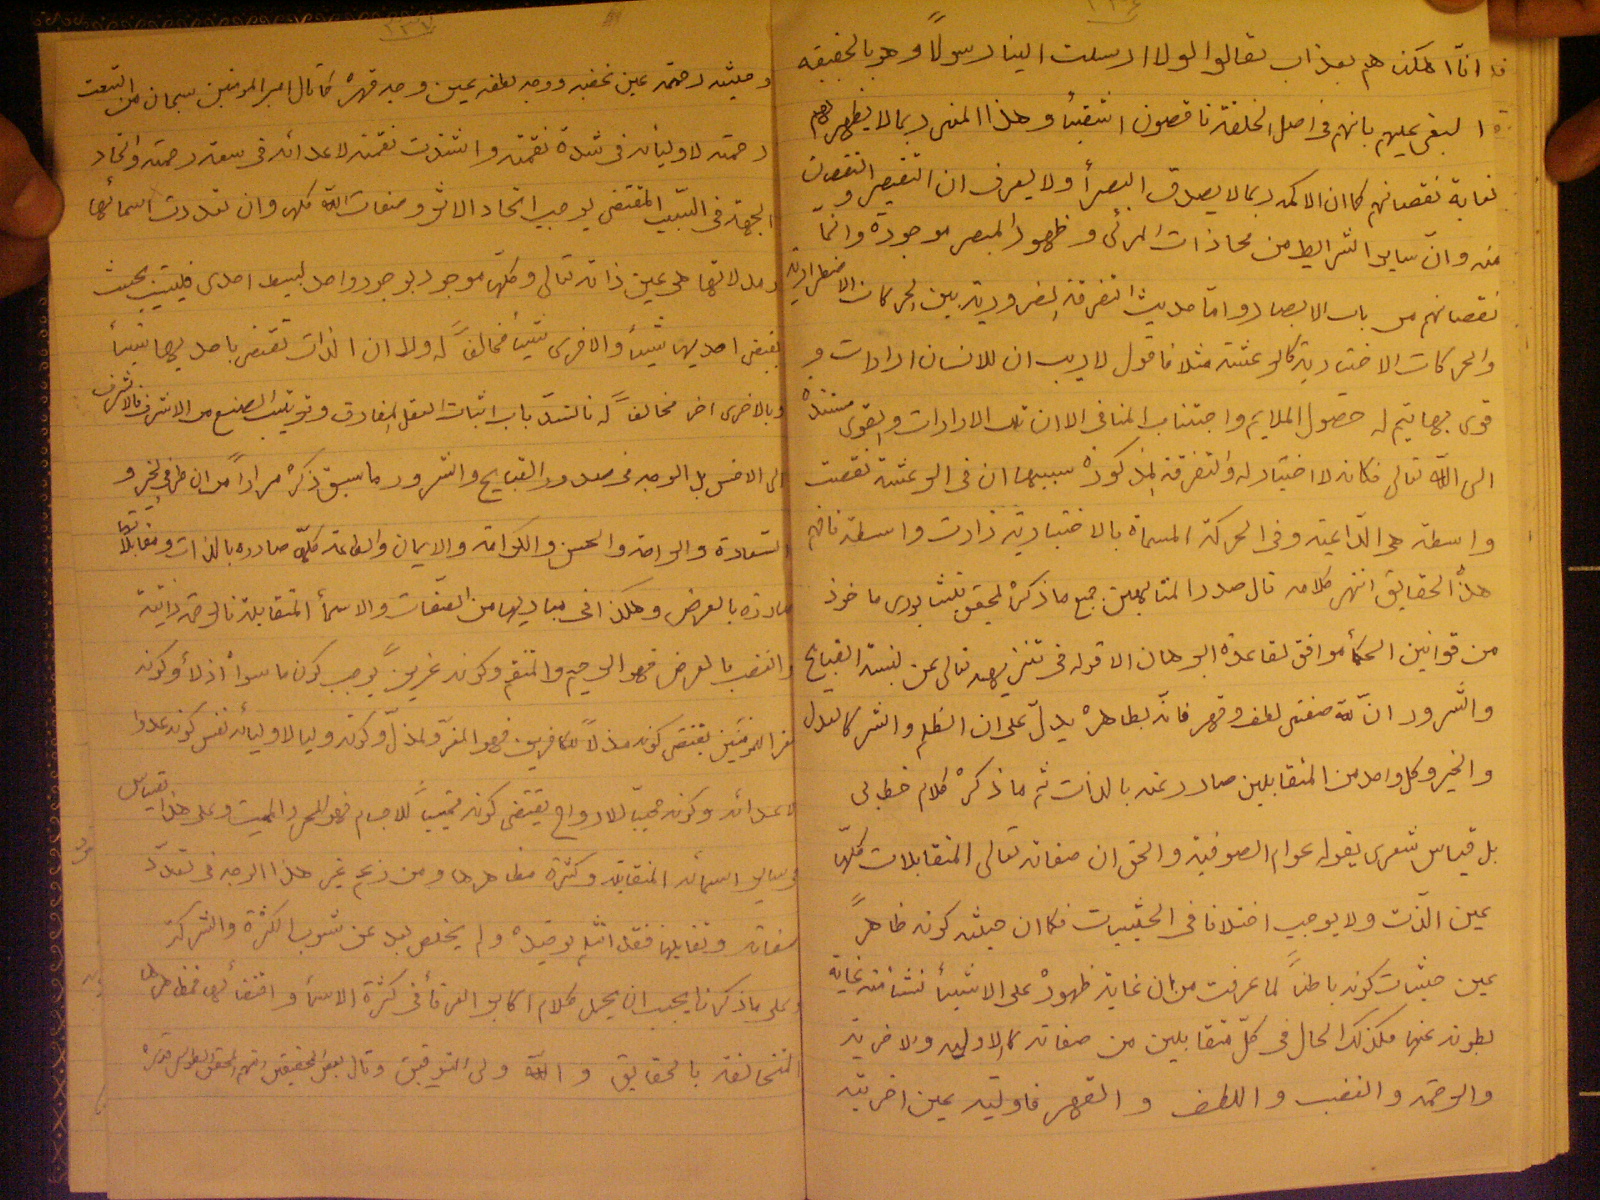 انا اهلكناهم بعذاب لقالوا لولا ارسلت الينا رسولاً وهو بالحقيقه
البغى عليهم بانهم فى اصل الخلقة ناقصون اشقياء وهذا المعنى ربما لا يظهر لهم
لغاية نقصانهم كما ان الاكمه ربما لا يصدق البصرأ ولا يعرف ان التقصير والنقصان
منه وان ساير الشرايط من محاذات المرئى و ظهور المبصر موجودة وانما
نقصانهم من باب الابصار واما حديث التفرقة الضرورية بين الحركات الاضطرارية
والحركات الاختيارية كالرعشة مثلا فاقول لا ريب ان للانسان ارادات و
قوى بها يتم له حصول الملايم واجتناب المنافى الا ان تلك الارادات والقوى مستندة
الى الله تعالى فكانه لا اختيار له والتفرقة المذكورة سببها ان فى الرعشة نقصت
واسطة هى الداعية وفى الحركة المسماة بالاختيارية زادت واسطة فافهم
هذه الحقايق انتهى كلامه قال صدر المتالهين جميع ما ذكره المحقق النيشابورى ماخوذ
من قوانين الحكمأ موافق لقاعدة البرهان الا قوله فى تنزيهه تعالى عن نسبة القبايح
والشرور ان لله صفتى لطف وقهر فانه بظاهره يدل على ان الظلم والشر كالعدل
والخير وكل واحد من المتقابلين صادر عنه بالذات ثم ما ذكره كلام خطابى
بل قياس شعرى يقوله عوام الصوفية والحق ان صفاته تعالى المتقابلات كلها
عين الذات ولا يوجب اختلافا فى الحيثيات فكما ان حيثية كونه ظاهراً
عين حيثيات كونه باطناً لما عرفت من ان غاية ظهوره على الاشيأ نشأ منه غاية
بطونه عنها فكذلك الحال فى كل متقابلين من صفاته كالاوليه والاخرية
والرحمة والغضب واللطف والقهر فاوليته عين اخريته
وحيثية رحمته عين غضبه ووجه لطفه عين وجه قهره كما قال امير المؤمنين سبحان من اتسعت
رحمته لاوليائه فى شدة نقمته واشتدت نقمته لاعدائه فى سعة رحمته واتحاد
الجهة فى السبب المقتضى يوجب اتحاد الاثر وصفات الله كلها وان تعددت اسمائها
ومدلولاتها هى عين ذاته تعالى وكلها موجود بوجود واحد بسيط احدى فليست بحيث
يقتضى احديها شيئأ والاخرى شيئأ مخالفاً له ولا ان الذات تقتضى باحديها شيئأ
وبالاخرى اخر مخالفاً له فانسد باب اثبات العقل المفارق وترتيب الصنع من الاشرف فالاشرف
الى الاخس بل الوجه فى صدور القبايح والشرور ما سبق ذكره مراراً من ان طرفى الخير و
السعادة والراحة والحسن والكرامة والايمان والطاعة كلها صادره بالذات ومقابلاتها
صادرة بالعرض وهكذا فى مباديها من الصفات والاسمأ المتقابلة فالرحمة ذاتية
والغضب بالعرض فهو الرحيم والمنتقم وكونه عزيزاً يوجب كون ما سوأه اذلأ وكونه
معز المؤمنين يقتضى كونه مذلاً للكافرين فهو المعز والمذل وكونه وليا لاوليائه نفس كونه عدوا
لاعدائه وكونه محيياً للارواح يقتضى كونه مميتاً للاجسام فهو المحى والمميت وعلى هذا القياس
وساير اسمائه المتقابلة وكثرة مظاهرها ومن زعم غير هذا الوجه فى تعدد
صفاته وتقابلها فقد انثلم توحيده ولم يخلص بعد عن شوب الكثرة والشركة
وعلى ما ذكرنا يجب ان يحمل كلام اكابر العرفأ فى كثرة الاسمأ واقتضأئها مظاهرها
المتخالفة بالحقايق والله ولى التوفيق وقال بعض المحققين